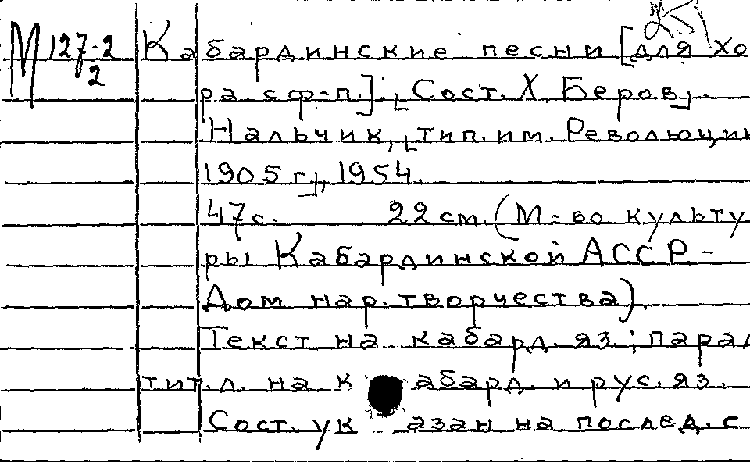 М 127-2/2 Кабардинские песни [для хо
ра с ф-п.]; [Сост. Х. Беров].
Нальчик, [тип. им. Революции
1905 г.], 1954.
47 с. 22 см. (М-во культу
ры Кабардинской АССР -
Дом нар. творчества)
Текст на кабард. яз.; парал
тит. л. на кабард. и рус. яз.
Сост. указан на послед. с